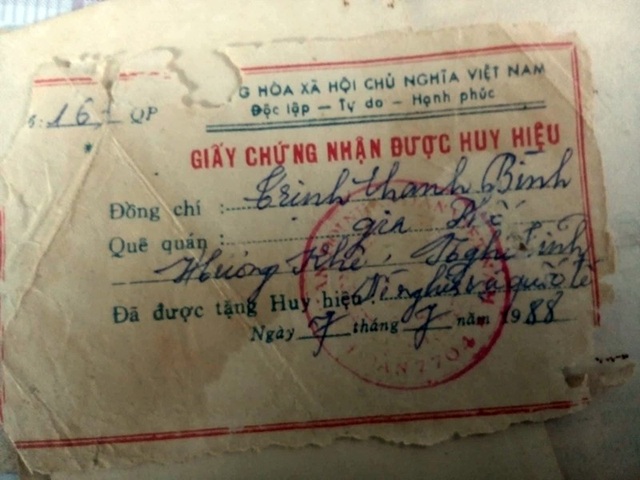 G HÒA XÃ HỘI CHỦ NGHĨA VIỆT NAM
Độc lập — Tự do — Hạnh phúc
: 16 - QP
GIẤY CHỨNG NHẬN ĐƯỢC HUY HIỆU
Đồng chí : Trịnh thanh Bình
Quê quán : gia Phố
Hương Khê, Nghệ Tĩnh
Đã được tặng Huy hiệu : Vì nghĩa vụ quốc tế
Ngày 7 tháng 7 năm 1988